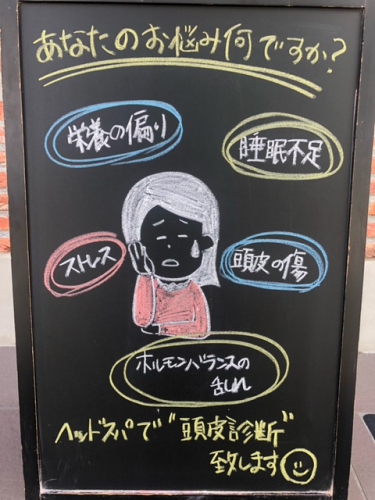 あなたのお悩み何ですか?
栄養の偏り
睡眠不足
ストレス
頭皮の傷
ホルモンバランスの
乱れ
ヘッドスパで"頭皮診断"
致します